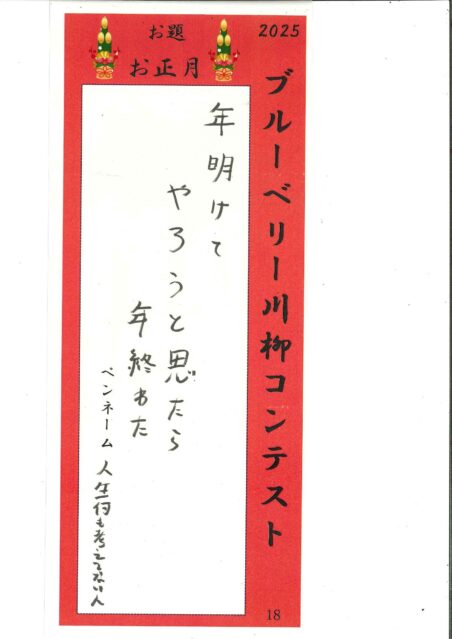 2025
ブルーベリー川柳コンテスト
お題
お正月
年明けて
やろうと思たら
年終わた
ペンネーム 人生何も考えてない人
18